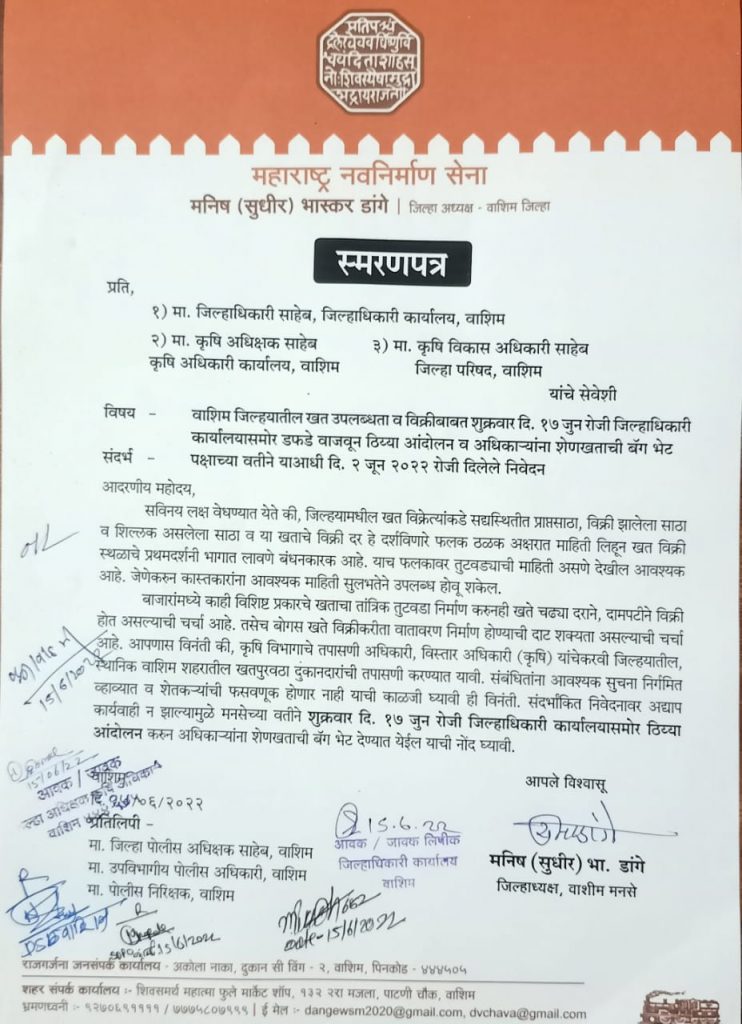 प्रतिपच्चं
द्रलेखेव वर्धिष्णुर्वि
श्ववंदिता शाहसू
नोः शिवस्यैषा मुद्रा
भद्राय राजते
महाराष्ट्र नवनिर्माण सेना
मनिष (सुधीर) भास्कर डांगे | जिल्हा अध्यक्ष - वाशिम जिल्हा
स्मरणपत्र
प्रति,
१) मा. जिल्हाधिकारी साहेब, जिल्हाधिकारी कार्यालय, वाशिम
२) मा. कृषि अधिक्षक साहेब ३) मा. कृषि विकास अधिकारी साहेब
कृषि अधिकारी कार्यालय, वाशिम जिल्हा परिषद, वाशिम
यांचे सेवेशी
विषय - वाशिम जिल्हयातील खत उपलब्धता व विक्रीबाबत शुक्रवार दि. १७ जुन रोजी जिल्हाधिकारी
कार्यालयासमोर डफडे वाजवून ठिय्या आंदोलन व अधिकाऱ्यांना शेणखताची बॅग भेट
संदर्भ - पक्षाच्या वतीने याआधी दि. २ जून २०२२ रोजी दिलेले निवेदन
आदरणीय महोदय,
सविनय लक्ष वेधण्यात येते की, जिल्हयामधील खत विक्रेत्यांकडे सद्यस्थितीत प्राप्तसाठा, विक्री झालेला साठा
व शिल्लक असलेला साठा व या खताचे विक्री दर हे दर्शविणारे फलक ठळक अक्षरात माहिती लिहून खत विक्री
स्थळाचे प्रथमदर्शनी भागात लावणे बंधनकारक आहे. याच फलकावर तुटवड्याची माहिती असणे देखील आवश्यक
आहे. जेणेकरुन कास्तकारांना आवश्यक माहिती सुलभतेने उपलब्ध होवू शकेल.
बाजारांमध्ये काही विशिष्ट प्रकारचे खताचा तांत्रिक तुटवडा निर्माण करुनही खते चढ्या दराने, दामपटीने विक्री
होत असल्याची चर्चा आहे. तसेच बोगस खते विक्रीकरीता वातावरण निर्माण होण्याची दाट शक्यता असल्याची चर्चा
आहे. आपणास विनंती की, कृषि विभागाचे तपासणी अधिकारी, विस्तार अधिकारी (कृषि) यांचेकरवी जिल्हयातील,
स्थानिक वाशिम शहरातील खतपुरवठा दुंकानदारांची तपासणी करण्यात यावी. संबंधितांना आवश्यक सुचना निर्गमित
व्हाव्यात व शेतकऱ्यांची फसवणूक होणार नाही याची काळजी घ्यावी ही विनंती. संदर्भांकित निवेदनावर अद्याप
कार्यवाही न झाल्यामुळे मनसेच्या वतीने शुक्रवार दि. १७ जुन रोजी जिल्हाधिकारी कार्यालयासमोर ठिय्या
आंदोलन करुन अधिकाऱ्यांना शेणखताची बॅग भेट देण्यात येईल याची नोंद घ्यावी.
15/6/2022
15/06/22
आवक / जावक
वाशिम
कृषि अधिकारी
वाशिम
/०६/२०२२
आपले विश्वासू
प्रतिलिपी -
मा. जिल्हा पोलीस अधिक्षक साहेब, वाशिम
मा. उपविभागीय पोलीस अधिकारी, वाशिम
मा. पोलीस निरिक्षक, वाशिम
15.6.22
आवक / जावक लिपीक
जिल्हाधिकारी कार्यालय
वाशिम
मनिष (सुधीर) भा. डांगे
जिल्हाध्यक्ष, वाशीम मनसे
15/6/2022
Date-15/6/2022
राजगर्जना जनसंपर्क कार्यालय - अकोला नाका, दुकान सी विंग - २, वाशिम, पिनकोड - ४४४५०५
शहर संपर्क कार्यालय :- शिवसमर्थ महात्मा फुले मार्केट शॉप, १३२ २रा मजला, पाटणी चौक, वाशिम
भ्रमणध्वनी :- ९२७०६९११११ / ७७७५८०७९९९ | ई मेल :- dangewsm2020@gmail.com, dvchava@gmail.com